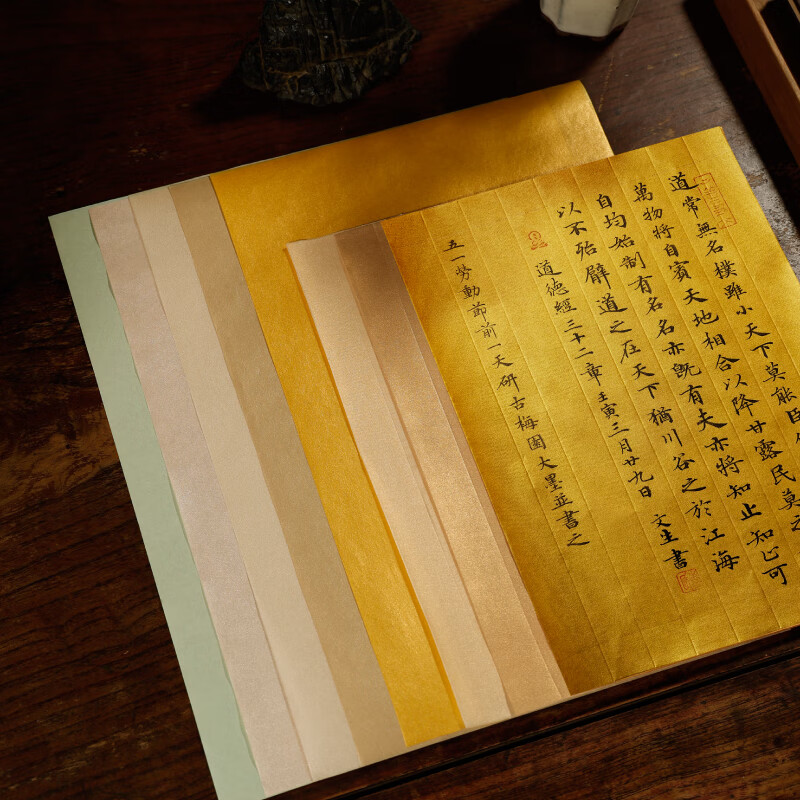 道常無名樸雖小天下莫能臣
萬物將自賓天地相合以降甘露民莫之
自均始制有名名亦既有夫亦將知止知止可
以不殆譬道之在天下猶川谷之於江海
道德經三十二章 壬寅三月廿九日 文生書
五一勞動節前一天研古梅園大墨並書之